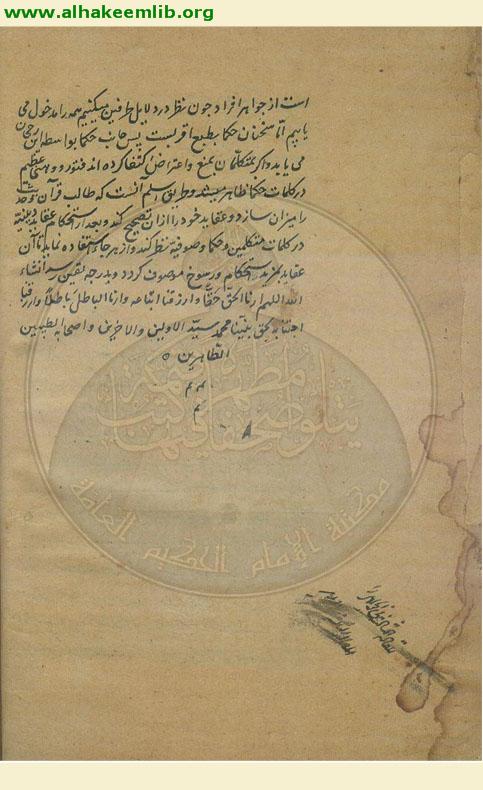 www.alhakeemlib.org
است از جواهر افراد چون نظر در دلایل طرفین میکنیم همه را مدخول می
یابیم امّا سخنان حکما بطبع اقربست پس جانب حکما بواسطه این رجحان
می یابد و اکثر متکلّمان بمنع و اعتراض اکتفا کرده اند فتور و وهنی عظیم
در کلمات حکما ظاهر میشد و طریق اسلم آنست که طالب قرآن و حدیث
را میزان سازد و عقاید خود را از آن تصحیح کند و بعد از استحکام عقاید دینیّه
در کلمات متکلمین و حکما و صوفیه نظر کند و از هر جا استفاده نماید تا آن
عقاید بمزید استحکام و رسوخ موصوف گردد و بدرجه یقین رسد انشاء
الله اللهم ارنا الحق حقّا و ارزقنا اتباعه و ارنا الباطل باطلا و ارزقنا
اجتنابه بحق نبیّنا محمد سیّد الاولین و الاخرین و اصحابه الطیبین
الطّاهرین
م م
م
مكتبة الإمام الحكيم العامة